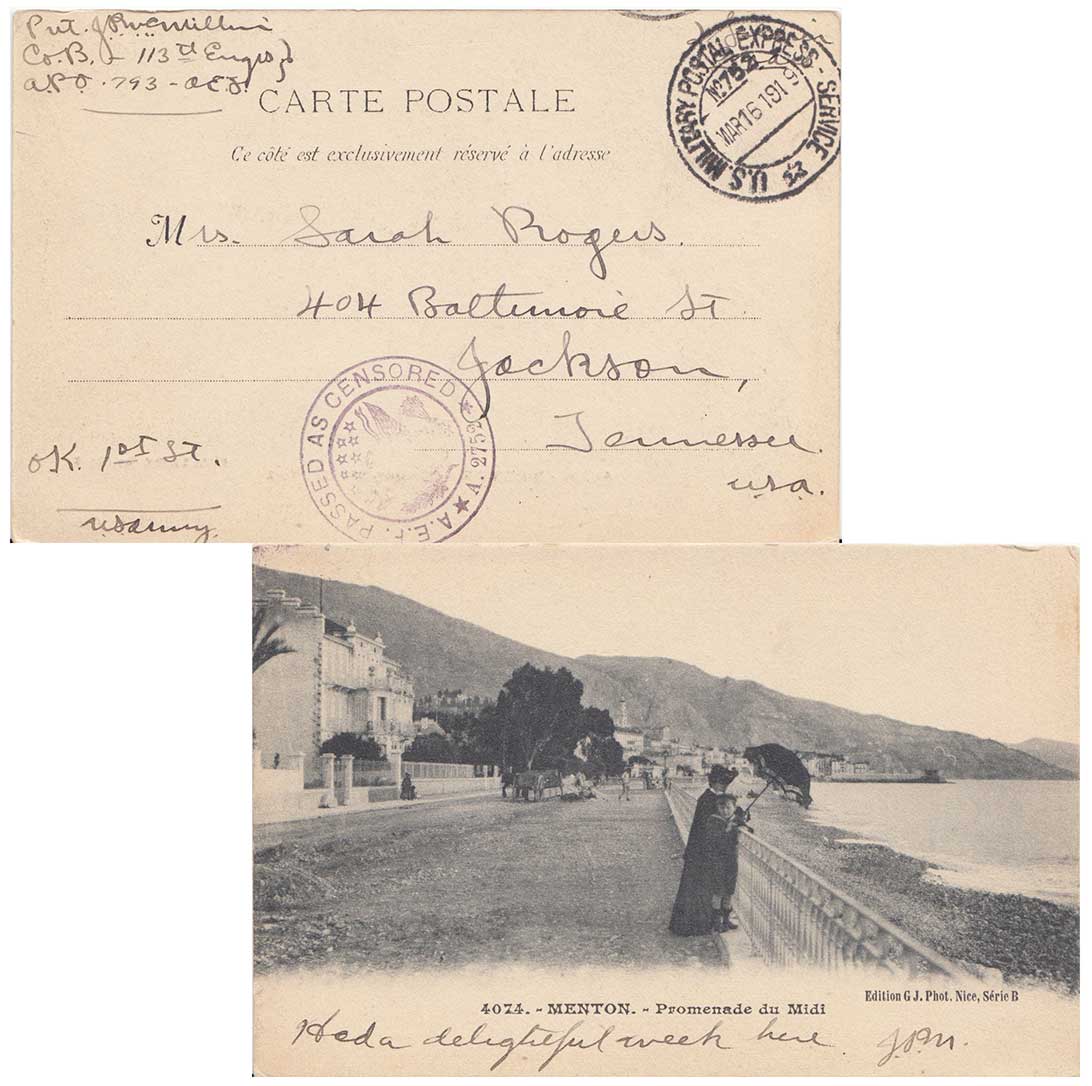 Pvt. J.P. McMillin
Co. B. - 113th Engrs }
A.P.O. 793 - A.E.F.
U.S. MILITARY POSTAL EXPRESS - SERVICE
No 752
MAR 16 1919
CARTE POSTALE
Ce côté est exclusivement réservé à l'adresse
Mrs. Sarah Rogers.
404 Baltimore St.
Jackson,
Tennessee.
U.S.A.
A.E.F. PASSED AS CENSORED ★ A. 2752 ★
OK. 1st Lt.
US Army.
4074. - MENTON. - Promenade du Midi
Edition G J. Phot. Nice, Série B
Had a delightful week here. J.P.M.